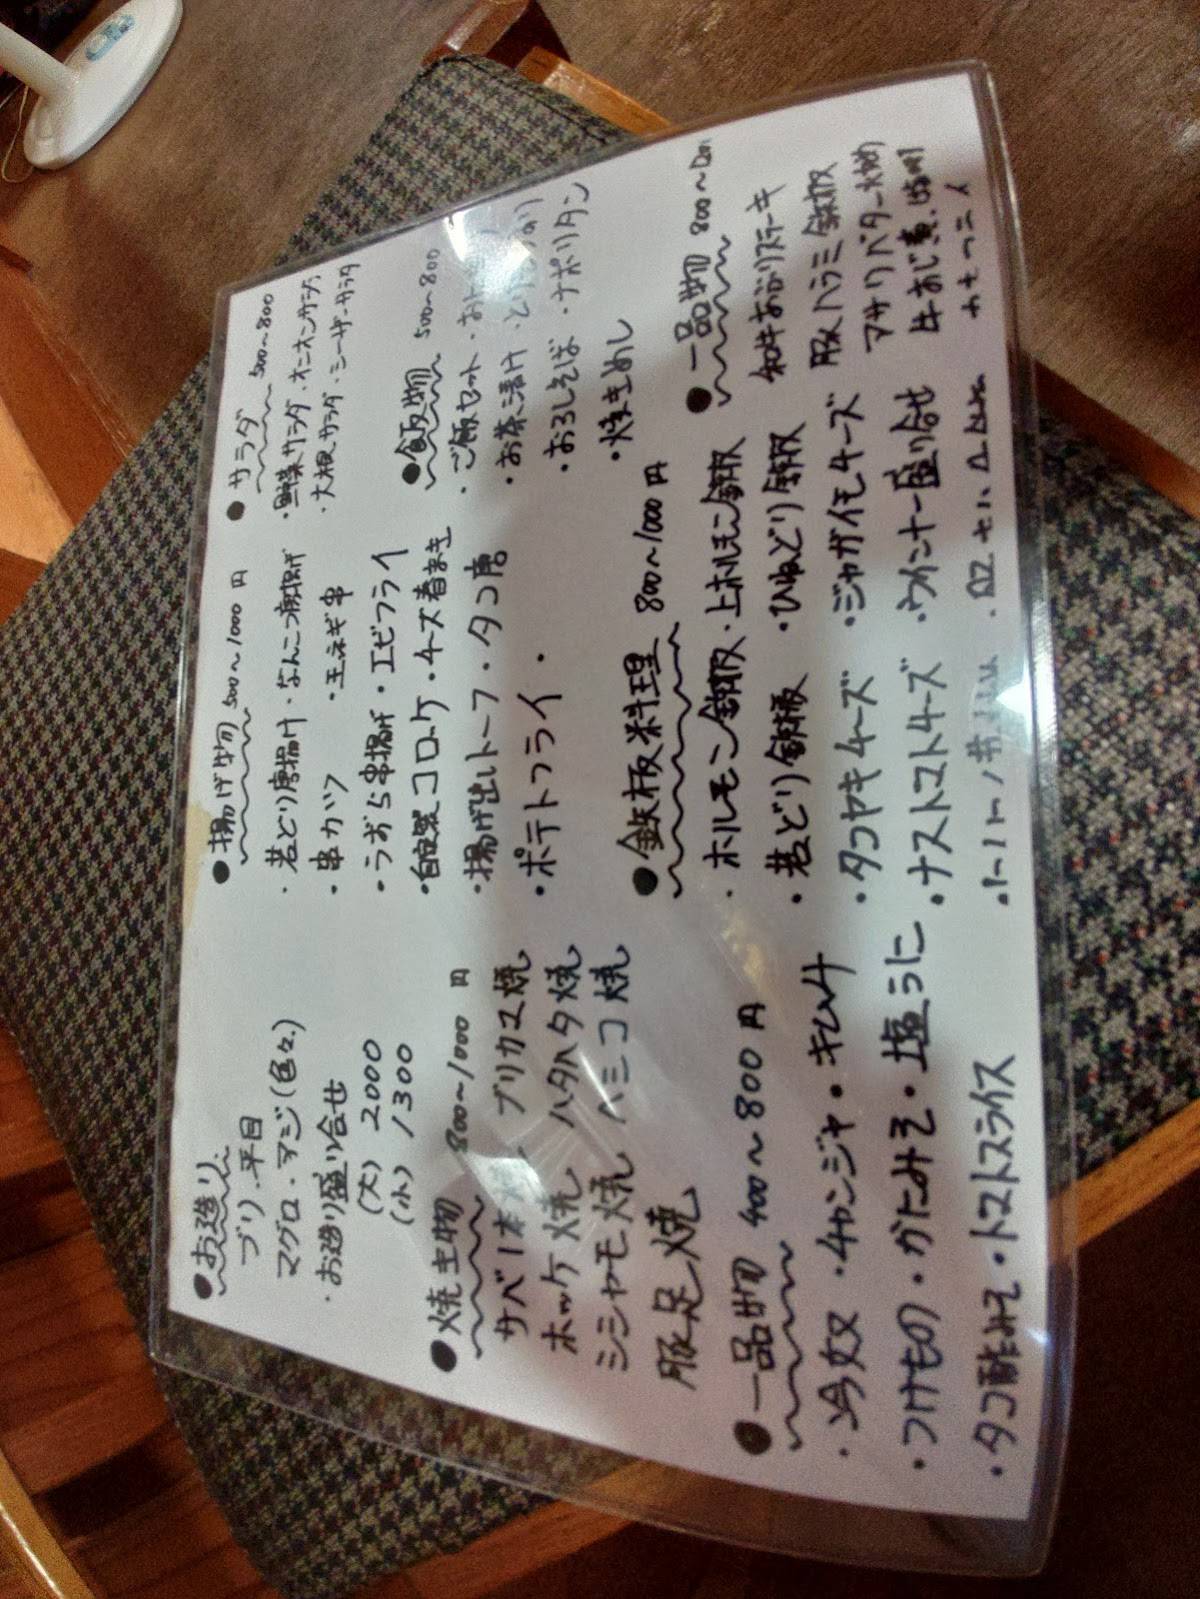 ●お造り
ブリ、平目
マグロ・アジ(色々)
・お造り盛り合せ
(大) 2000
(小) 1300
●焼き物 800～1000円
サバ1本 ブリカマ焼
ホッケ焼 ハタハタ焼
シシャモ焼 ヘシコ焼
豚足焼
●一品物 400～800円
・冷奴 ・チャンジャ・キムチ
・つけもの・かにみそ・塩うに
・タコ酢みそ・トマトスライス
●揚げ物 500～1000円
・若どり唐揚げ・なんこつ唐揚げ
・串カツ ・玉ネギ串
・うずら串揚げ・エビフライ
・自家製コロッケ・チーズ春まき
・揚げ出しトーフ・タコ唐
・ポテトフライ・
●鉄板料理 800～1000円
・ホルモン鉄板・上ホルモン鉄板
・若どり鉄板 ・ひねどり鉄板
・タコヤキチーズ ・ジャガイモチーズ
・ナストマトチーズ ・ウインナー盛り合せ
●サラダ 500～800
・野菜サラダ・オニオンサラダ
・大根サラダ・シーザーサラダ
●飯物 500～800
・ご飯セット・
・お茶漬け・
・おろしそば・ナポリタン
・焼きめし
●一品物 800～
和牛あぶりステーキ
豚ハラミ鉄板
アサリバター
牛すじ煮